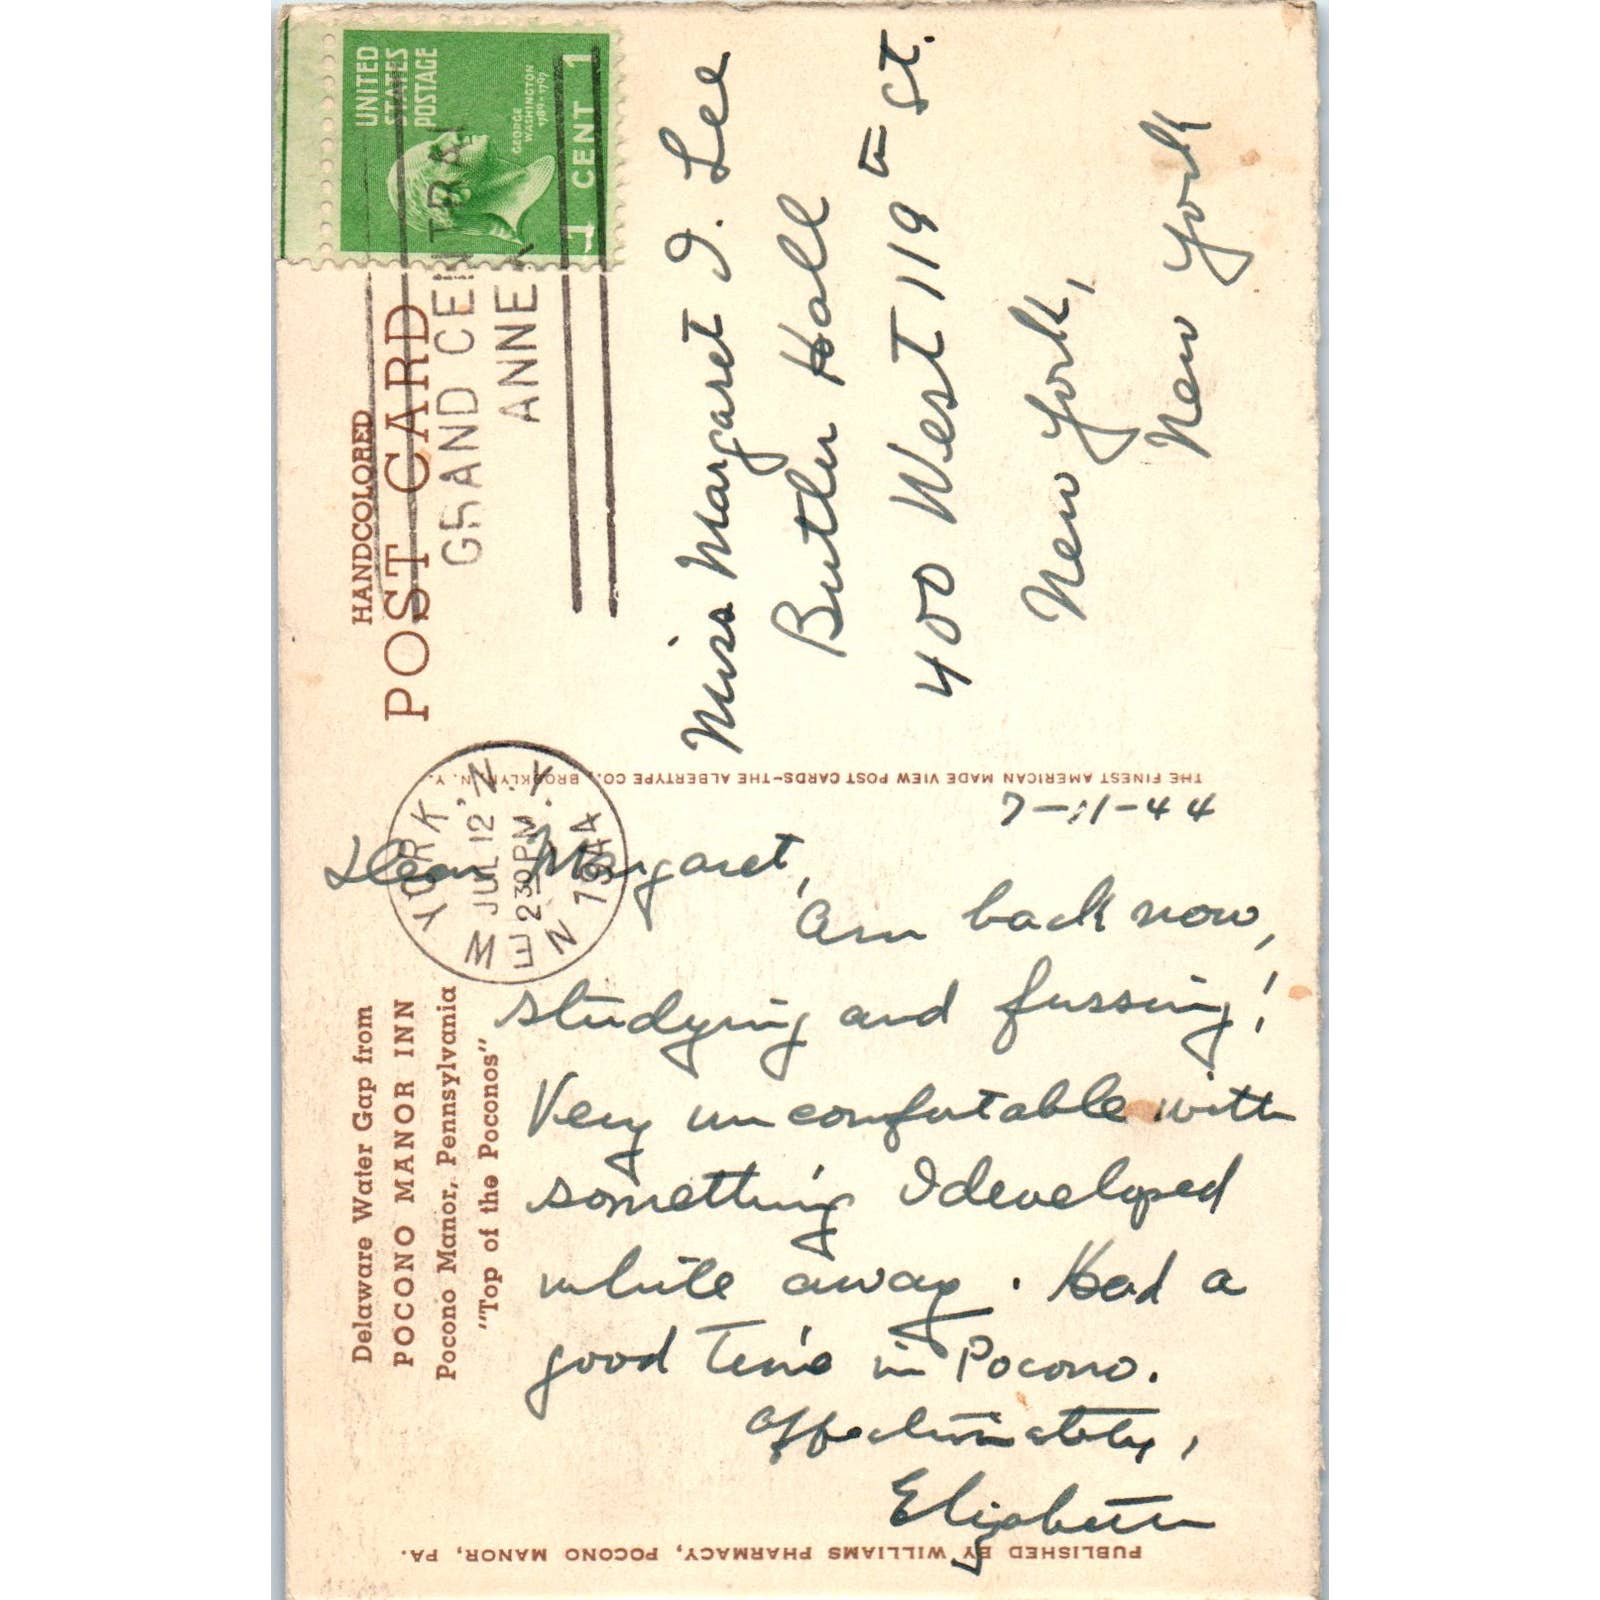 Delaware Water Gap from
POCONO MANOR INN
Pocono Manor, Pennsylvania
"Top of the Poconos"
HANDCOLORED
POST CARD
UNITED
STATES
POSTAGE
GEORGE
WASHINGTON
1789-1797
1 CENT 1
NEW YORK, N.Y.
JUL 12
2 30 PM
1944
GRAND CENTRAL
ANNEX
7-11-44
Dear Margaret,
Am back now,
studying and fussing!
Very uncomfortable with
something I developed
while away. Had a
good time in Pocono.
Affectionately,
Elizabeth
Miss Margaret I. Lee
Butler Hall
400 West 119th St.
New York,
New York
THE FINEST AMERICAN MADE VIEW POST CARDS-THE ALBERTYPE CO., BROOKLYN, N. Y.
PUBLISHED BY WILLIAMS PHARMACY, POCONO MANOR, PA.